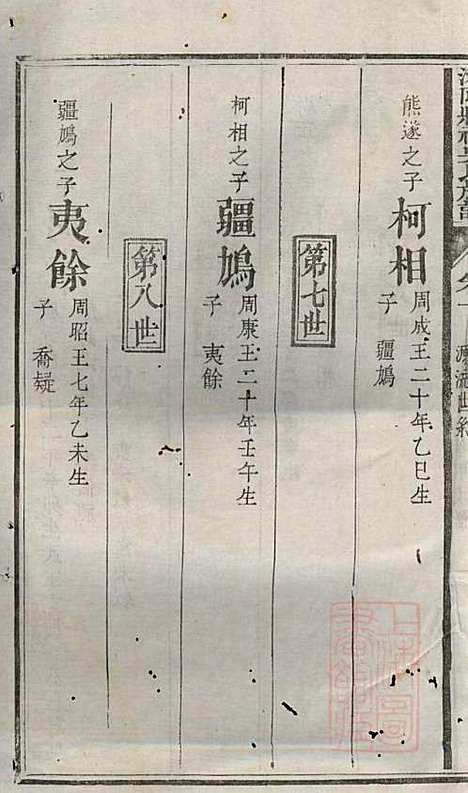 源流世紀
熊遂之子
柯相
周成王二十年乙巳生
子 疆鳩
第七世
柯相之子
疆鳩
周康王二十年壬午生
子 夷餘
第八世
疆鳩之子
夷餘
周昭王七年乙未生
子 喬疑